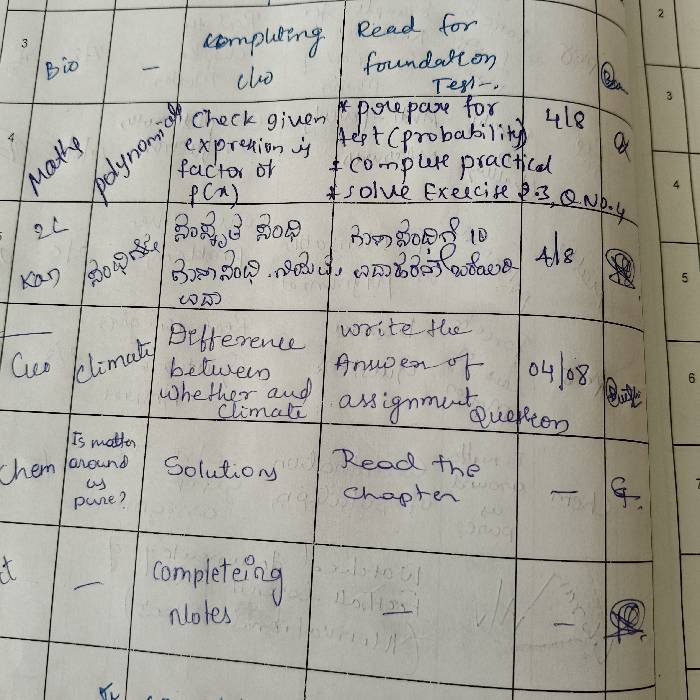 3
Bio
—
computing
Read for
foundation
Test-.
4
Maths
polynomials
Check given
expression is
factor of
p(x)
* prepare for
test (probability)
* complete practical
* solve Exercise 2.3, Q.No.4
4/8
2L
Kan
ಸಂಸ್ಕೃತ ಸಂಧಿ
4/8
Geo
climate
Difference
between
whether and
climate
write the
Answer of
assignment
Question
04/08
Chem
Is matter
around
us
pure?
Solutions
Read the
chapter
—
G.
—
completeing
notes
—
—
2
3
4
5
6
7